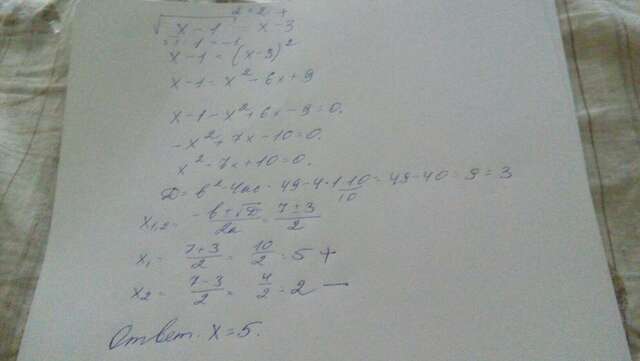 2=2 +
√x-1 x-3
x-1=(x-3)²
x-1=x²-6x+9
x-1-x²+6x-9=0.
-x²+7x-10=0.
x²-7x+10=0.
D=b²-4ac=49-4·1·10=49-40=9=3
10
x₁,₂ = (-b±√D)/2a = (7±3)/2
x₁= (7+3)/2 = 10/2 = 5 +
x₂= (7-3)/2 = 4/2 = 2 —
Ответ. x=5.